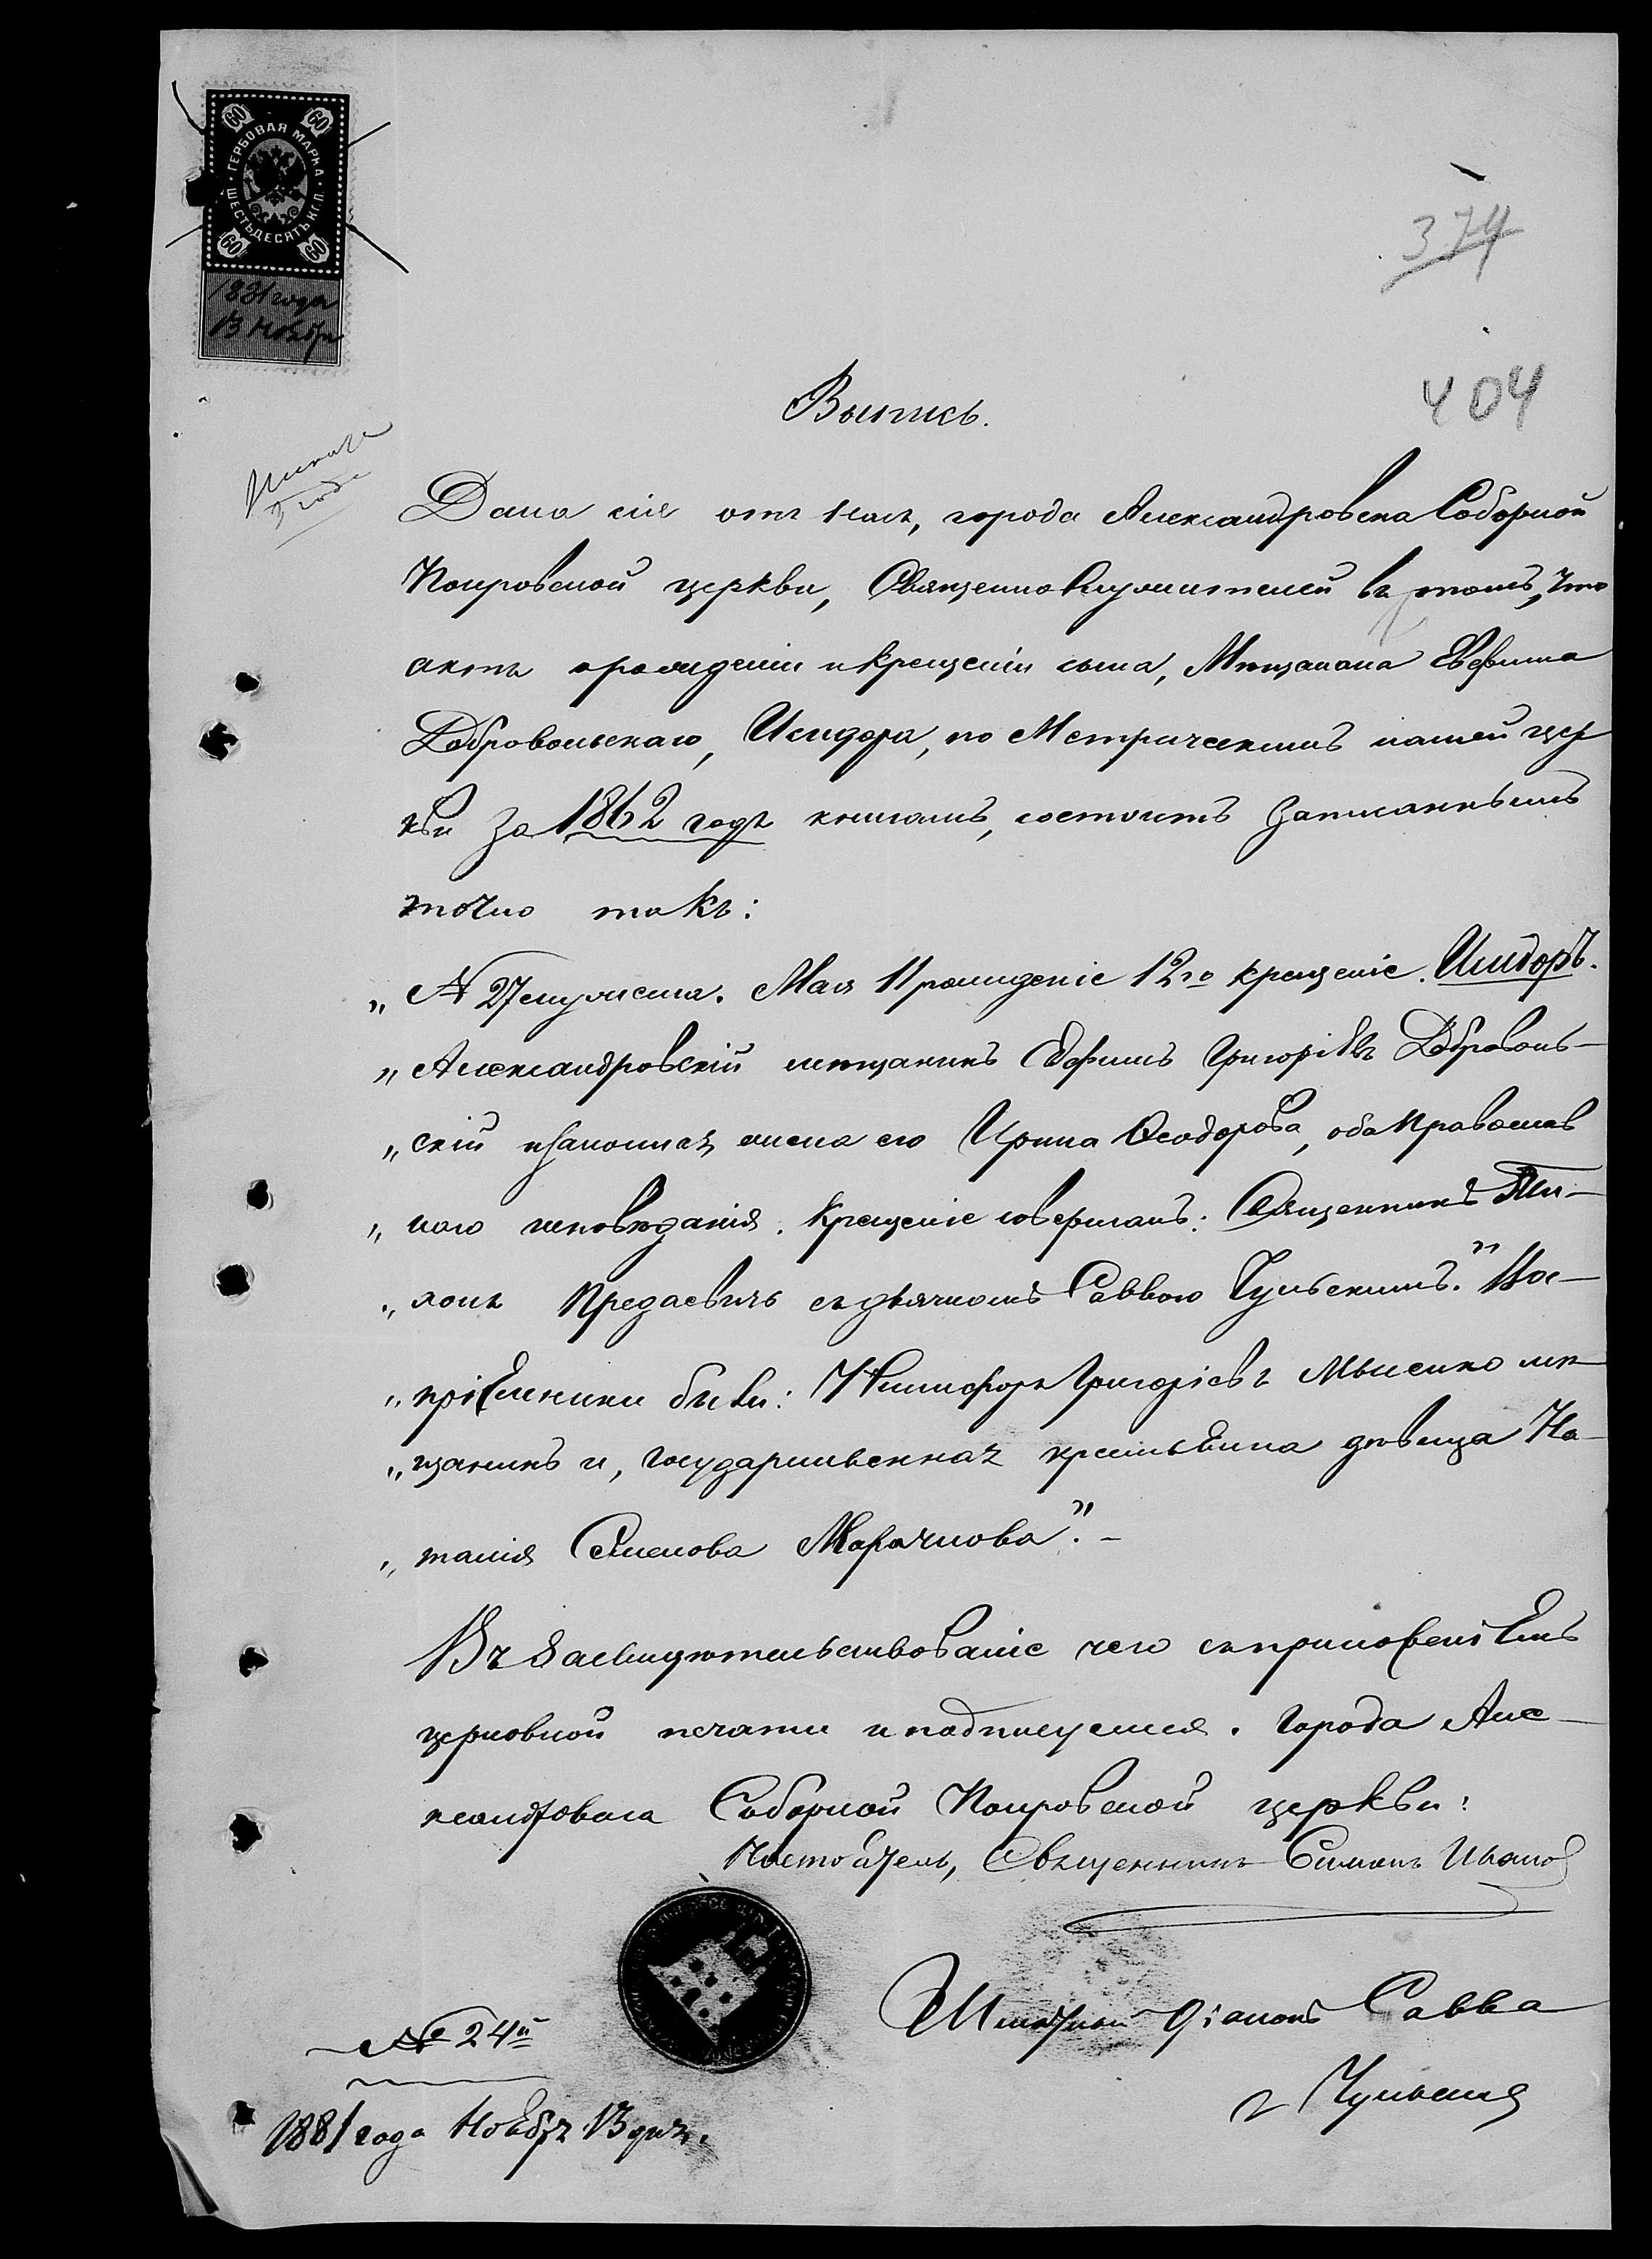 60 60
ГЕРБОВАЯ МАРКА
ШЕСТЬДЕСЯТЪ КОП.
60 60
1881 года
13 Ноября
374
404
Выпись.
Дана сія отъ насъ, города Александровска Соборной
Покровской церкви, Священнослужителей въ томъ, что
актъ о рожденіи и крещеніи сына, Мѣщанина Евфима
Добровольскаго, Исидора, по Метрическимъ нашей цер
кви за 1862 годъ книгамъ, состоитъ записаннымъ
точно такъ:
„ № 27 мужеска. Мая 11 рожденіе 12го крещеніе. Исидоръ.
„ Александровскій мѣщанинъ Евфимъ Григоріевъ Доброволь-
„ скій и законная жена его Ирина Ѳеодорова, оба православ
„ наго исповѣданія. Крещеніе совершалъ: Священникъ
„ съ дьячкомъ Саввою Чульскимъ." Вос-
„ пріемники были: Никифоръ Григорьевъ Мысенко мѣ-
„ щанинъ и, государственная крестьянка дѣвица На-
„ талія Семенова Марачкова". -
Въ засвидѣтельствованіе чего съ приложеніемъ
церковной печати и подписуемся. Города Алe-
ксандровска Соборной Покровской церкви:
Настоятель, Священникъ Симонъ
Штатный діаконъ Савва
Чульскій
№ 24й
1881 года Ноября 13 дня.